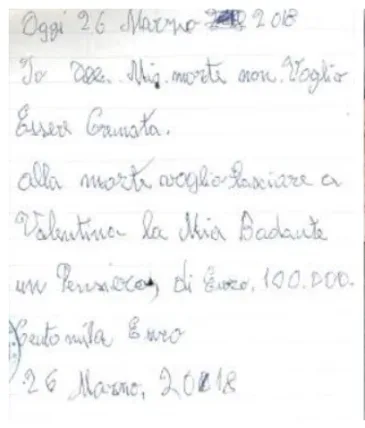 Oggi 26 Marzo 2018
Io Alla Mia morte non Voglio
Essere Cremata.
alla morte voglio lasciare a
Valentina la Mia Badante
un Pensiero, di Euro, 100.000.
Centomila Euro
26 Marzo, 2018